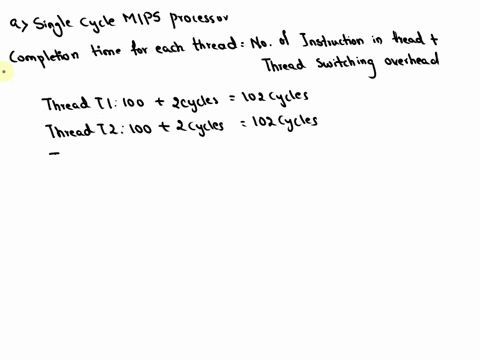 a) Single Cycle MIPS processor
Completion time for each thread = No. of Instruction in thead +
Thread Switching overhead
Thread T1 : 100 + 2 cycles = 102 Cycles
Thread T2 : 100 + 2 cycles = 102 Cycles